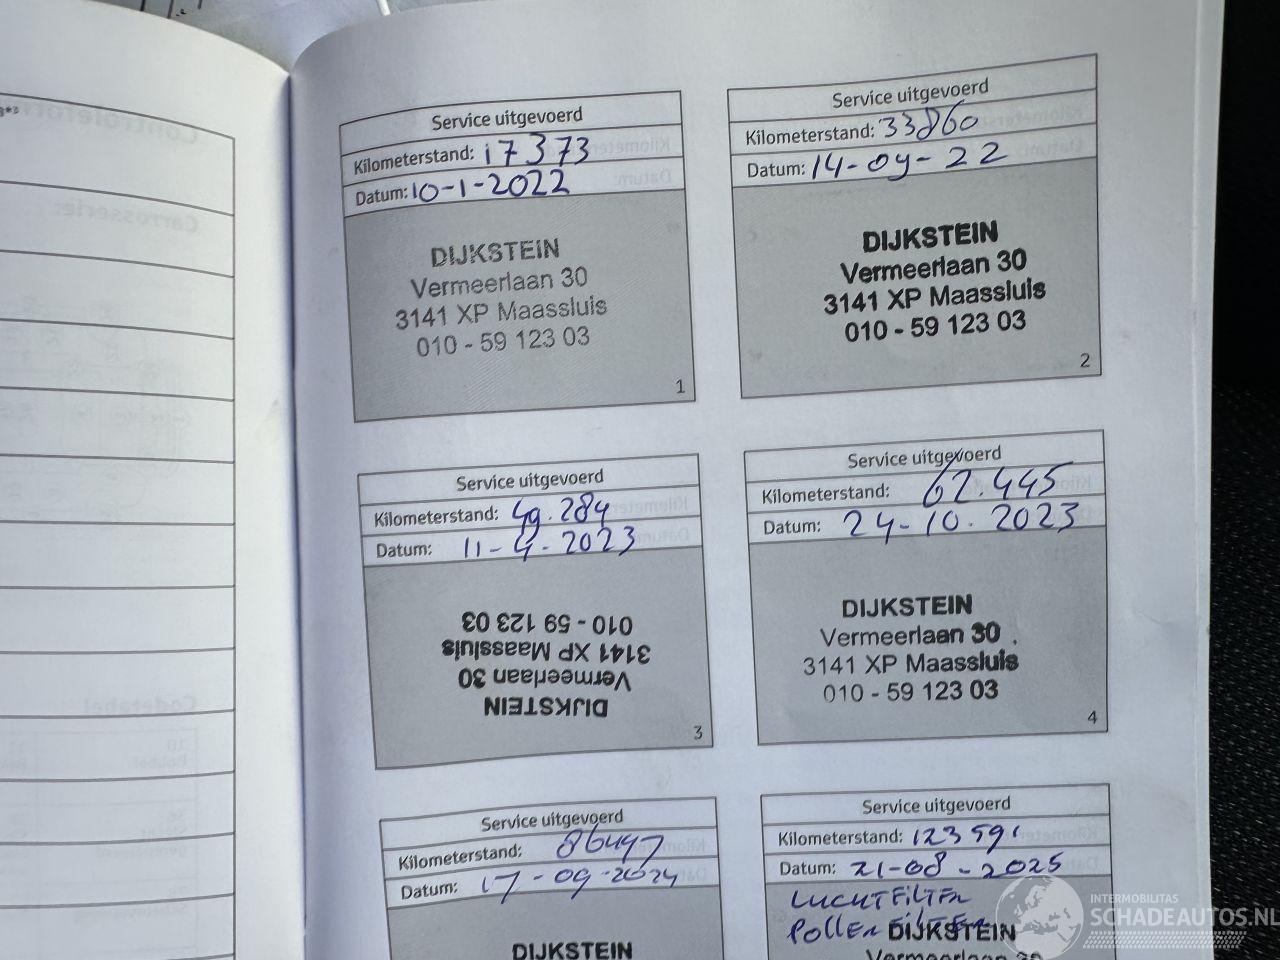 Service uitgevoerd
Kilometerstand: 17373
Datum: 10-1-2022
DIJKSTEIN
Vermeerlaan 30
3141 XP Maassluis
010 - 59 123 03
1
Service uitgevoerd
Kilometerstand: 33860
Datum: 14-09-22
DIJKSTEIN
Vermeerlaan 30
3141 XP Maassluis
010 - 59 123 03
2
Service uitgevoerd
Kilometerstand: 49.284
Datum: 11-4-2023
DIJKSTEIN
Vermeerlaan 30
3141 XP Maassluis
010 - 59 123 03
3
Service uitgevoerd
Kilometerstand: 62.445
Datum: 24-10.2023
DIJKSTEIN
Vermeerlaan 30
3141 XP Maassluis
010 - 59 123 03
4
Service uitgevoerd
Kilometerstand:
Datum: 17-09-2024
DIJKSTEIN
Service uitgevoerd
Kilometerstand: 123591
Datum: 21-08-2025
LUCHTFILTER
POLLENFILTER
DIJKSTEIN
Vermeerlaan 30
INTERMOBILITAS
SCHADEAUTOS.NL